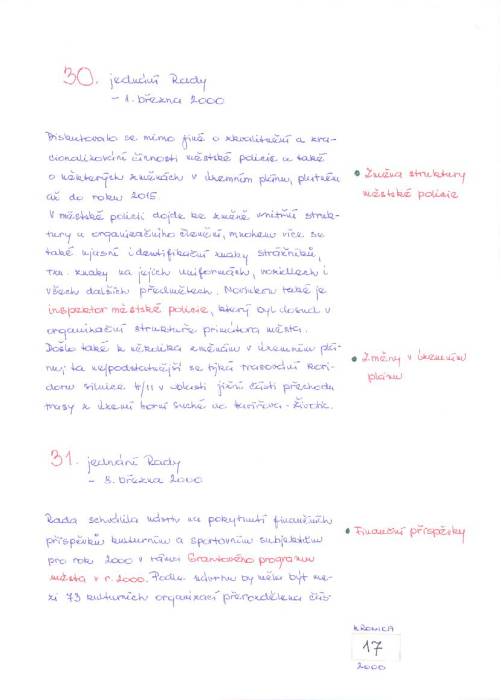 30. jednání Rady
– 1. března 2000
Diskutovalo se mimo jiné o zkvalitnění a zra-
cionalizování činnosti městské policie a také
o některých změnách v územním plánu, platném
až do roku 2015.
• Změna struktury
městské policie
V městské policii dojde ke změně vnitřní struk-
tury a organizačního členění, mnohem více se
také ujasní identifikační znaky strážníků,
tzn. znaky na jejich uniformách, vozidlech i
všech dalších předmětech. Novinkou také je
inspektor městské policie, který byl dosud v
organizační struktuře primátora města.
Došlo také k několika změnám v územním plá-
nu; ta nejpodstatnější se týká trasování kori-
doru silnice I/11 v oblasti jižní části přechodu
trasy z území Horní Suché na Havířova - Životic.
• Změny v územním
plánu
31. jednání Rady
– 8. března 2000
Rada schválila návrh na poskytnutí finančních
příspěvků kulturním a sportovním subjektům
pro rok 2000 v rámci Grantového programu
města v r. 2000. Podle návrhu by měla být me-
zi 73 kulturních organizací přerozdělena část-
• Finanční příspěvky
KRONIKA
17
2000